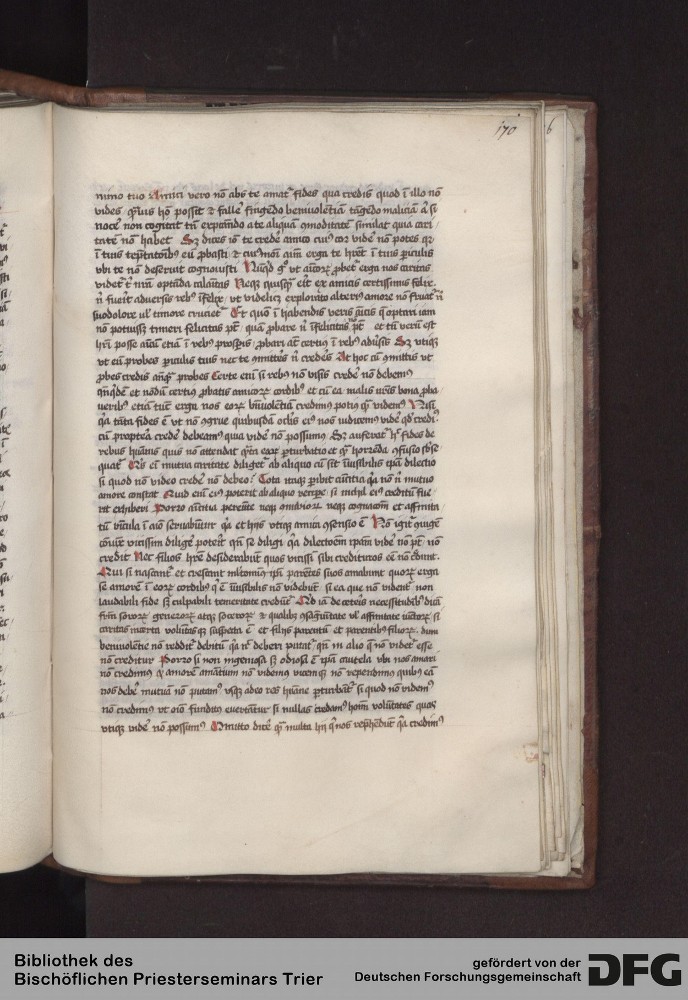 170
6
nimo tuo Amici vero nō abs te amat᷑ fides qua credis quod ī illo nō
vides qᷓlius hō possit ⁊ falle᷑ fingēdo benivolētiā tāgēdo maliciā
noce᷑ non cogitat tn̄ expectādo a te aliquā ꝯmoditatē simulat quia cari
tatē nō habet Sꝫ dices iō te crede᷑ amico cui᷒ cor vide᷑ nō potes
ī tuis tēptatōnibꝰ eū ꝓbasti ⁊ erga te ī tuis ꝑiculis
ubi te nō deseruit cognovisti ꝓbet᷑ erga nos caritas
videt᷑ ē nr̄m optāda calamitas Neqꝫ quisqꝫ ex amicis certissimis felix
n̄ fuerit adversis rebꝰ īfelix ut videlicꝫ explorato alteriꝰ amore nō fruat᷑
suo dolore vl᷑ timore cruciet᷑ Et quō ī habendis veris amicis optari iam
nō potiusꝫ timeri felicitas pōt quā ꝓbare n̄ īfelicitas pōt et tn̄ verū est
hr̄i posse amicū etiā ī rebꝰ prosꝑis ꝓbari aūt certiꝰ ī rebꝰ adversis Sꝫ utiqꝫ
ut eū probes ꝑiculis tuis nec te ꝯmitteres n̄ crederes At hoc cū ꝯmittis ut
ꝓbes credis anteqꝫ probes Certe enī si rebꝰ nō visis crede᷑ nō debemꝰ
qn̄qdē et nōdū certiꝰ ꝓbatis amicoꝝ cordibꝰ et cū ea malis nr̄is bona ꝓba
verimꝰ etiā tunc erga nos eoꝝ benivolētiā credimꝰ potiꝰ qꝫ videmꝰ Nisi
qa tāta fides ē ut nō ꝯgrue quibusdā oclis eiꝰ nos iudicemꝰ vide᷑ qd᷑ credi
cū propterea crede᷑ debeamꝰ quia vide᷑ nō possumꝰ Sꝫ auferat᷑ fides de
rebus hūanis quis nō attendat qn̄ta eaꝝ ꝑturbatio et qꝫ horrēda ꝯfusio sb̄se
quat᷑ Quis enī mutua caritate diliget᷑ ab aliquo cū sit īvisibilis ip̄a dilectio
si quod nō video crede᷑ nō debeo Tota itaqꝫ ꝑibit amicitia qa nō n̄ mutuo
amore constat Quid enī eiꝰ poterit ab aliquo reciꝑe si nichil eiꝰ creditū fue
rit exhiberi Porro amicitia pereunte neqꝫ ꝯnubioꝝ neqꝫ cognatōnū et affinita
tū vīcula ī aīo servabūtur qa et ī hijs utiqꝫ amica ꝯsensio ē Nō igit᷑ ꝯiugē
cōiunx vicissim dilige᷑ poterit qn̄ se diligi qa dilectōem ip̄am vide᷑ nō pōt nō
credit Nec filios hr̄e desiderabūt quos vicissī sibi credituros ee nō credunt
Qui si nascant᷑ et crescant multomiꝰ ip̄i parētes suos amabunt quoꝝ erga
se amorē ī eoꝝ cordibꝰ qꝫ ē īvisibilis nō videbūt si ea que nō vident᷑ non
laudabili fide sꝫ culpabili temeritate credūt᷑ Quid iā de ceteris necessitudibꝰ dicā
fr̄m soroꝝ generoꝝ atqꝫ soceroꝝ ⁊ qualibꝫ ꝯsāguītate vl᷑ affinitate iūctoꝝ si
caritas incerta volūtasqꝫ suspecta ē et filijs parentū et parentibꝰ filioꝝ dum
benivolentie nō reddit᷑ debitū qa n̄ deberi putat᷑ qn̄ in alio qꝫ nō videt᷑ esse
nō creditur Porro si non ingeniosa sꝫ odiosa ē ip̄a cautela ubi nos amari
nō credimꝰ qꝫ amorē amantium nō videmꝰ vicemqꝫ nō rependimꝰ quibꝰ eā
nos debe᷑ mutuā nō putamꝰ Usqꝫ adeo res hūane ꝑturbāt᷑ si quod nō videmꝰ
nō credimꝰ ut oīo funditꝰ evertātur si nullas credamꝰ hoīm volūtates quas
utiqꝫ vide᷑ nō possumꝰ Omitto dice᷑ qꝫ multa hij qꝫ nos rep̄hendūt qa credimꝰ
Bibliothek des
Bischöflichen Priesterseminars Trier
gefördert von der
Deutschen Forschungsgemeinschaft
DFG